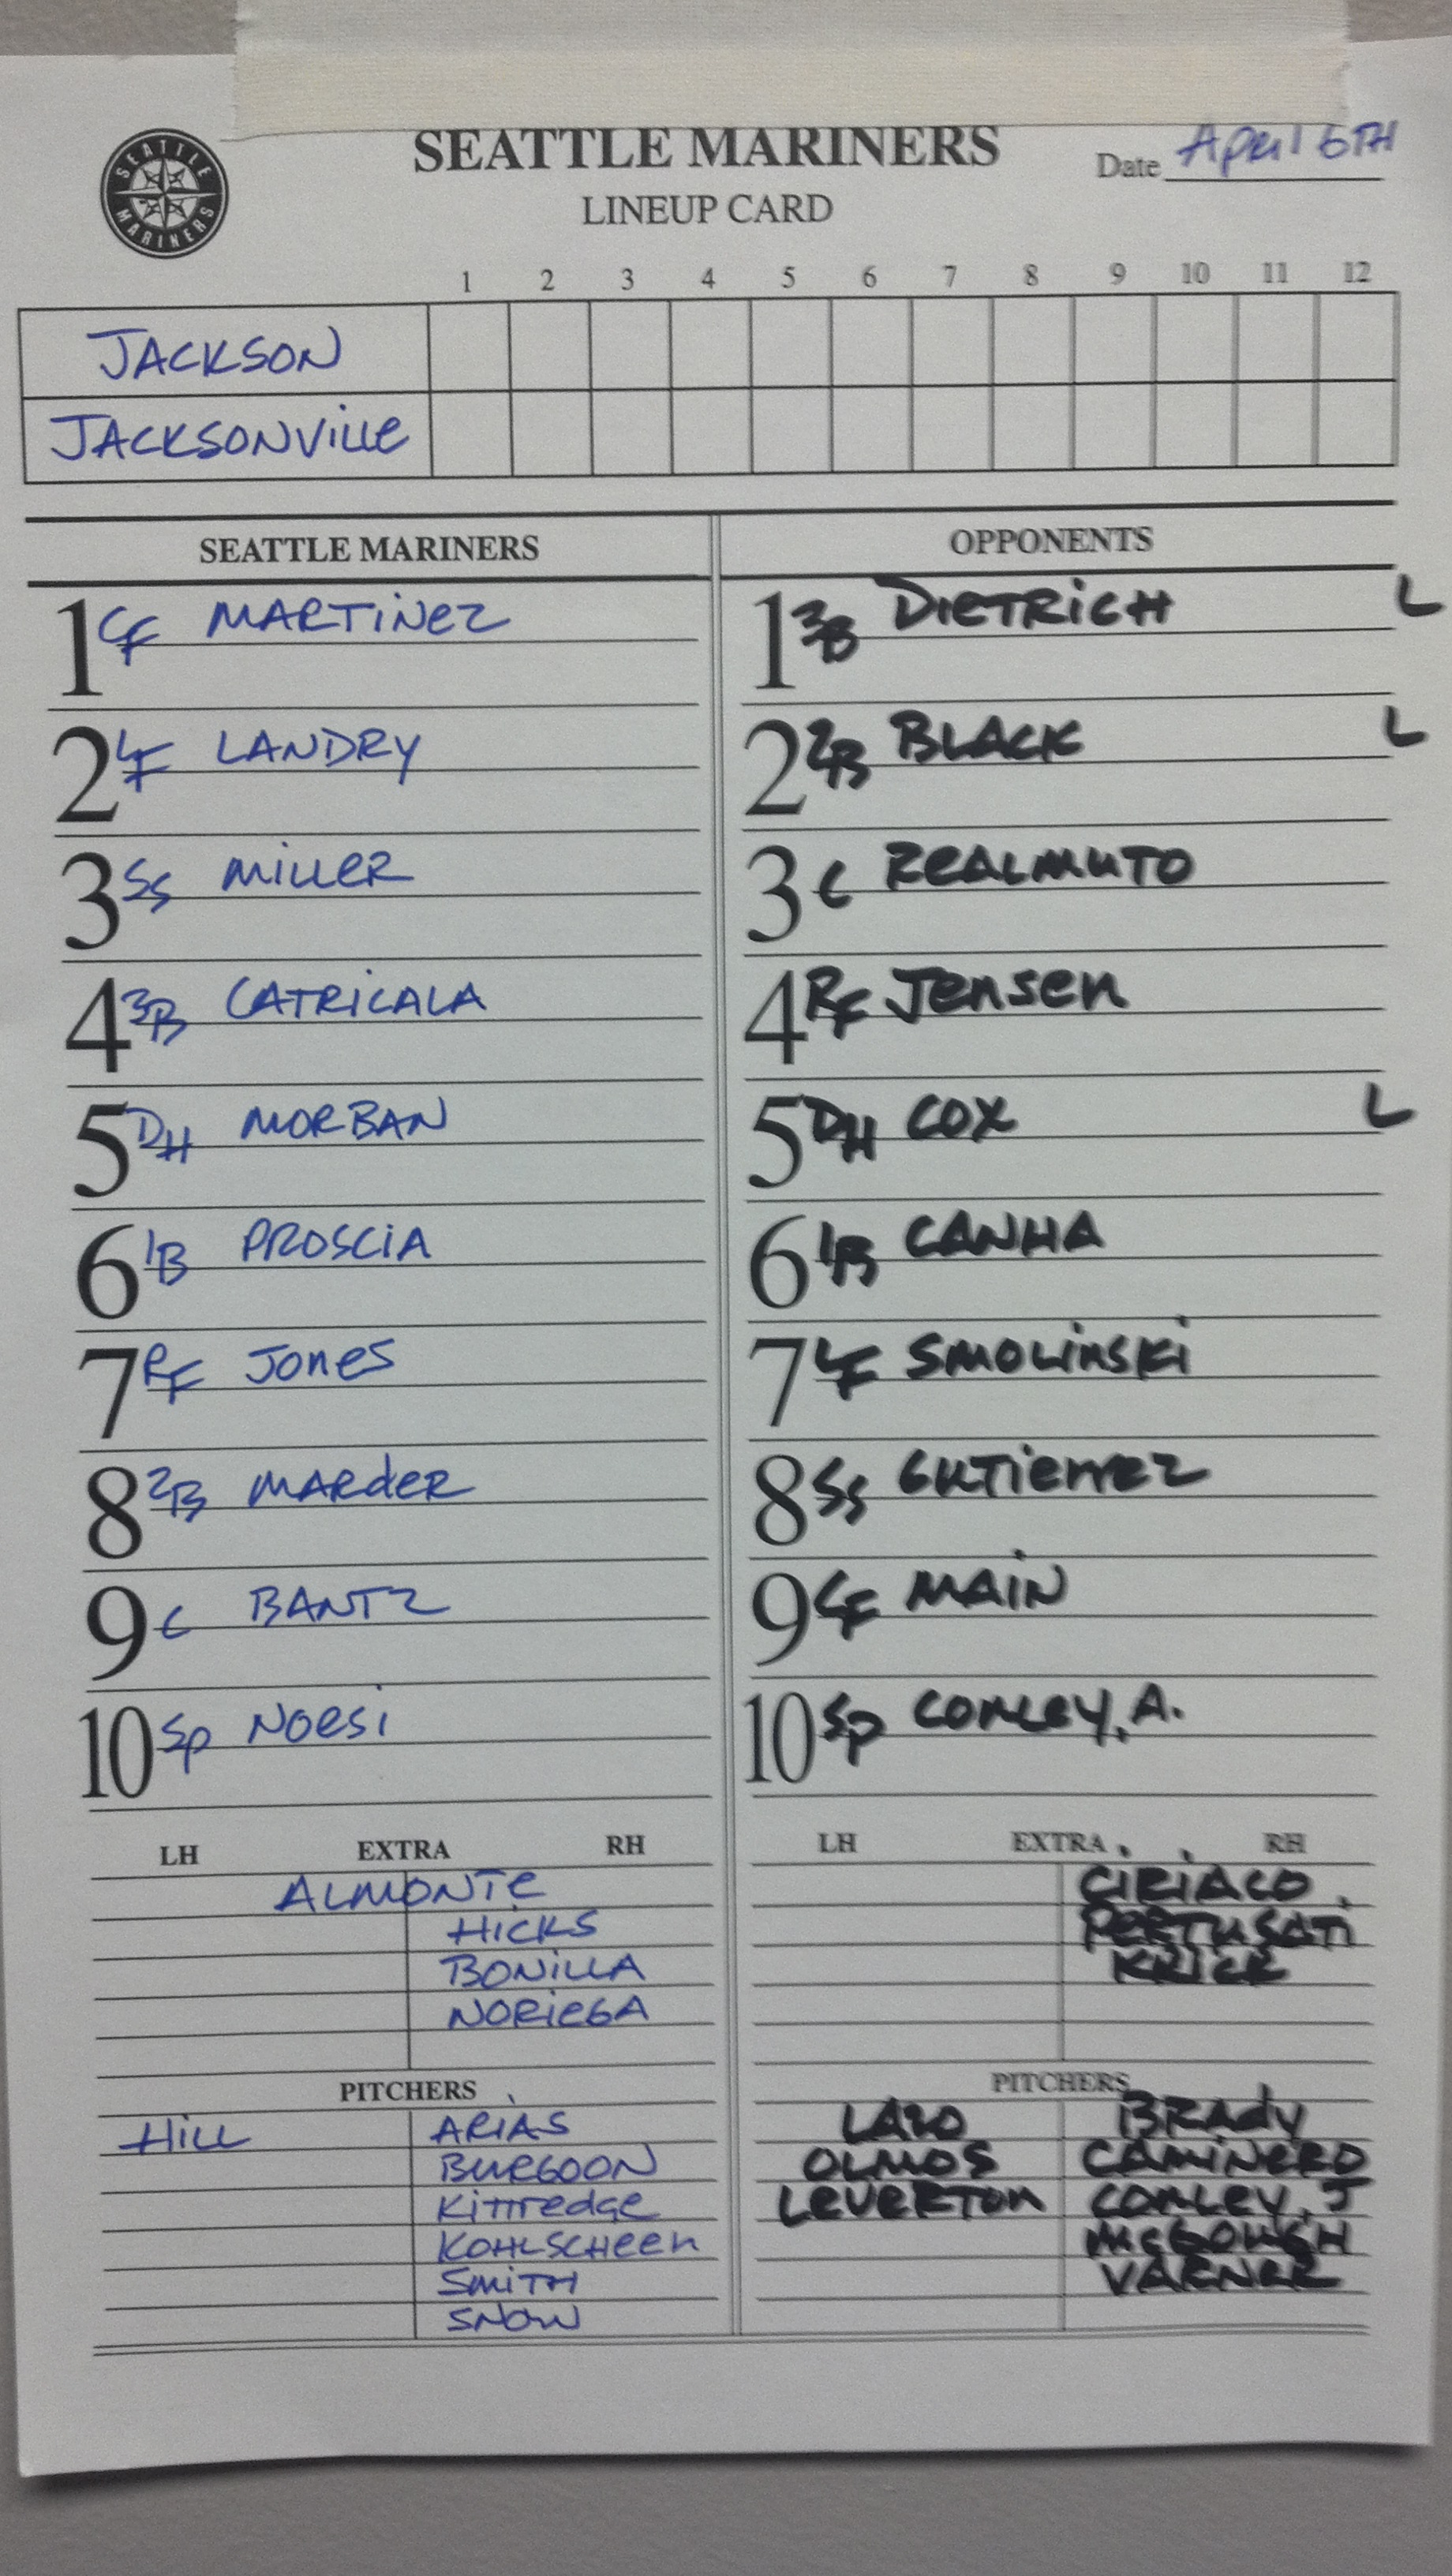 SEATTLE MARINERS
SEATTLE MARINERS
Date April 6TH
LINEUP CARD
1 2 3 4 5 6 7 8 9 10 11 12
JACKSON
JACKSONVille
SEATTLE MARINERS
1 CF MARTiNez
2 LF LANDRY
3 SS MiLLeR
4 3B CATRiCALA
5 DH MORBAN
6 1B PROSCiA
7 RF Jones
8 2B MARdeR
9 C BANTZ
10 SP NOeSi
LH EXTRA RH
ALMONTe
HiCKS
BONiLLA
NORieGA
PITCHERS
HiLL ARiAS
BURGOON
KiTTredge
KOHLSCHeen
SMiTH
SNOW
OPPONENTS
1 3B DIETRiCH L
2 2B BLACK L
3 C ReALMuTO
4 RF Jensen
5 DH COX L
6 1B CANHA
7 LF SMOLinSKi
8 SS GuTierrez
9 CF MAiN
10 SP CONLeY, A.
LH EXTRA RH
CiRiACO
PeRTuSATi
KRiCK
PITCHERS
LAZO BRAdy
OLMOS CAMiNeRO
LeVeRTOn CONLeY, J
McGOuGH
VARNeR